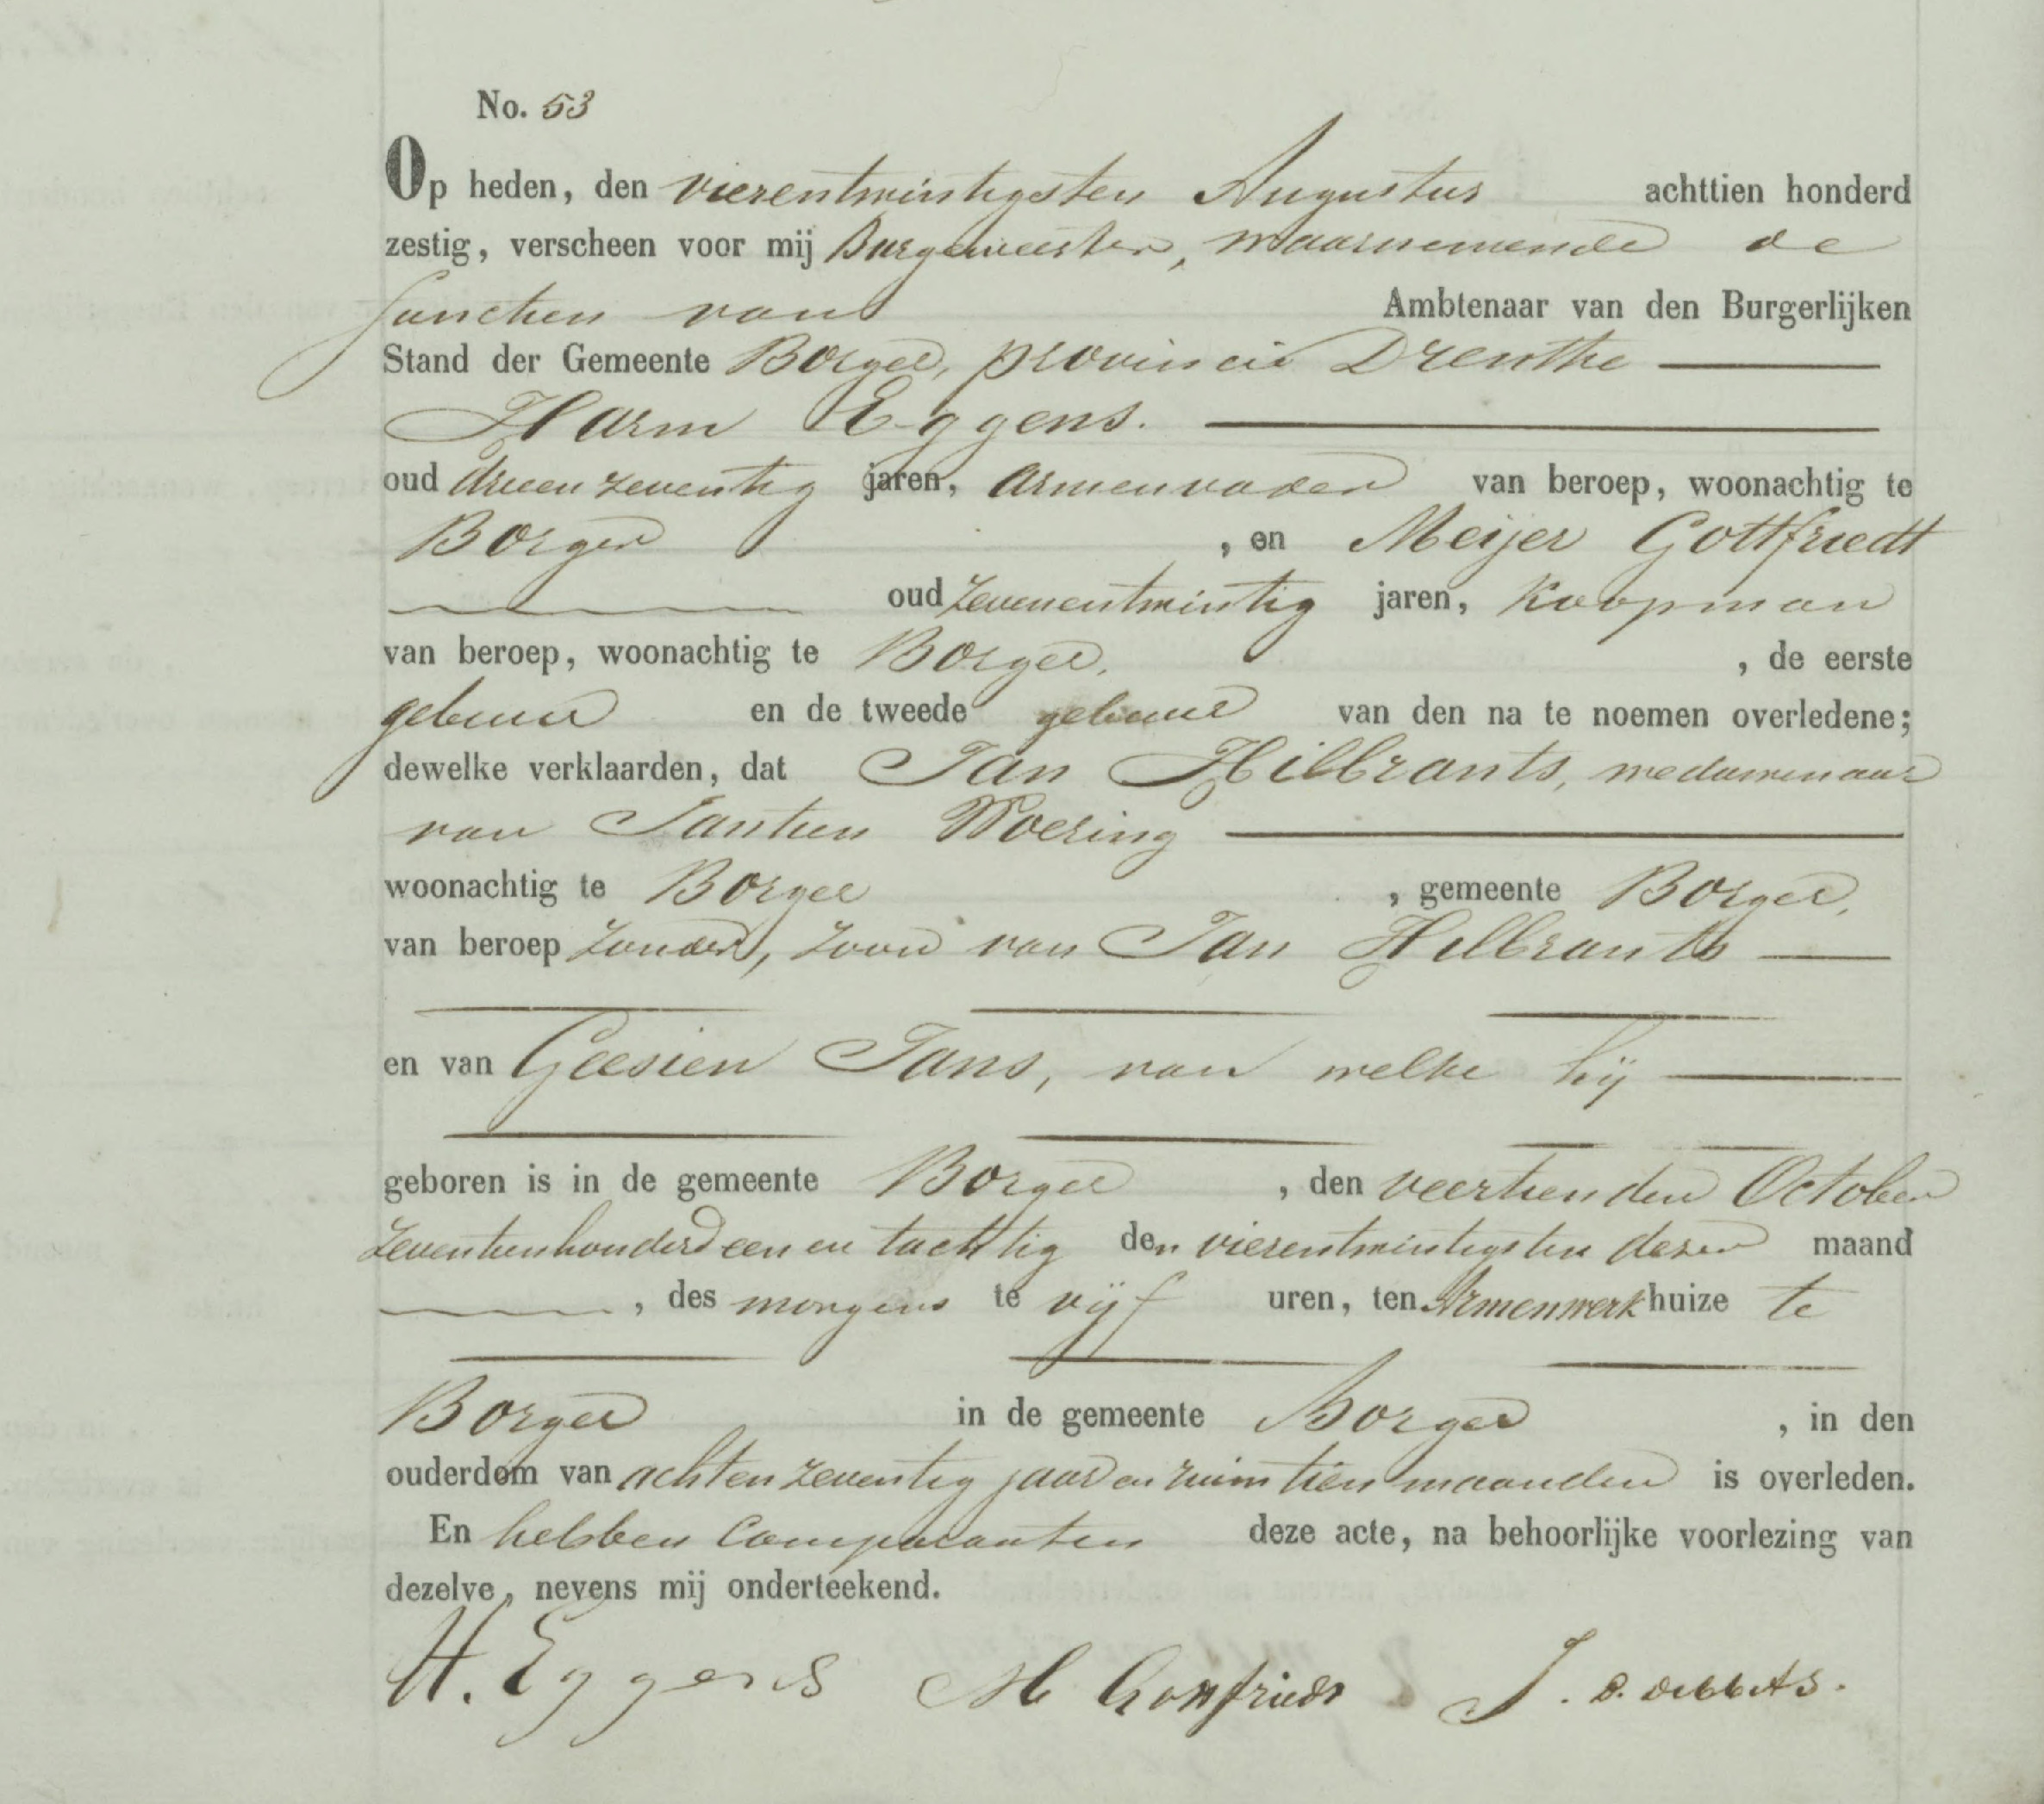 No. 53
Op heden, den vierentwintigsten Augustus achttien honderd
zestig, verscheen voor mij Burgemeester, waarnemende de
functien van Ambtenaar van den Burgerlijken
Stand der Gemeente Borger, provincie Drenthe
Harm Eggens.
oud drieenzeventig jaren, armenvader van beroep, woonachtig te
Borger, en Meijer Gottfriedt
oud zevenentwintig jaren, Koopman
van beroep, woonachtig te Borger, de eerste
gebuur en de tweede gebuur van den na te noemen overledene;
dewelke verklaarden, dat Jan Hilbrants, weduwenaar
van Jantien Woering
woonachtig te Borger, gemeente Borger,
van beroep zonder, zoon van Jan Hilbrants
en van Geesien Jans, van welke hij
geboren is in de gemeente Borger, den veertienden October
zeventienhonderd een en tachtig den vierentwintigsten dezer maand
, des morgens te vijf uren, ten Armenwerkhuize te
Borger in de gemeente Borger, in den
ouderdom van achtenzeventig jaar en ruim tien maanden is overleden.
En hebben Comparanten deze acte, na behoorlijke voorlezing van
dezelve, nevens mij onderteekend.
H. Eggens M Gottfriedt J.